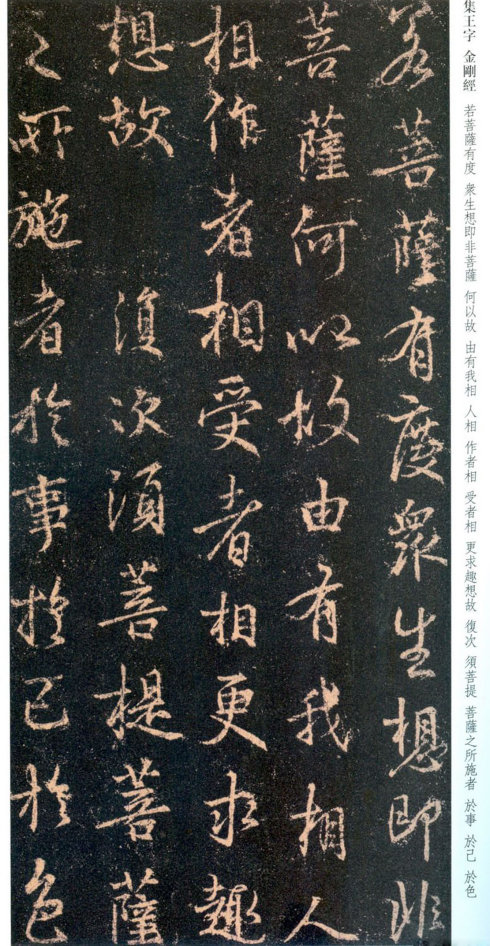 集王字 金剛經 若菩薩有度 衆生想即非菩薩 何以故 由有我相 人相 作者相 受者相 更求趣想故 復次 須菩提 菩薩之所施者 於事 於己 於色
若菩薩有度衆生想即非
菩薩何以故由有我相人
相作者相受者相更求趣
想故 復次須菩提菩薩
之所施者於事於己於色